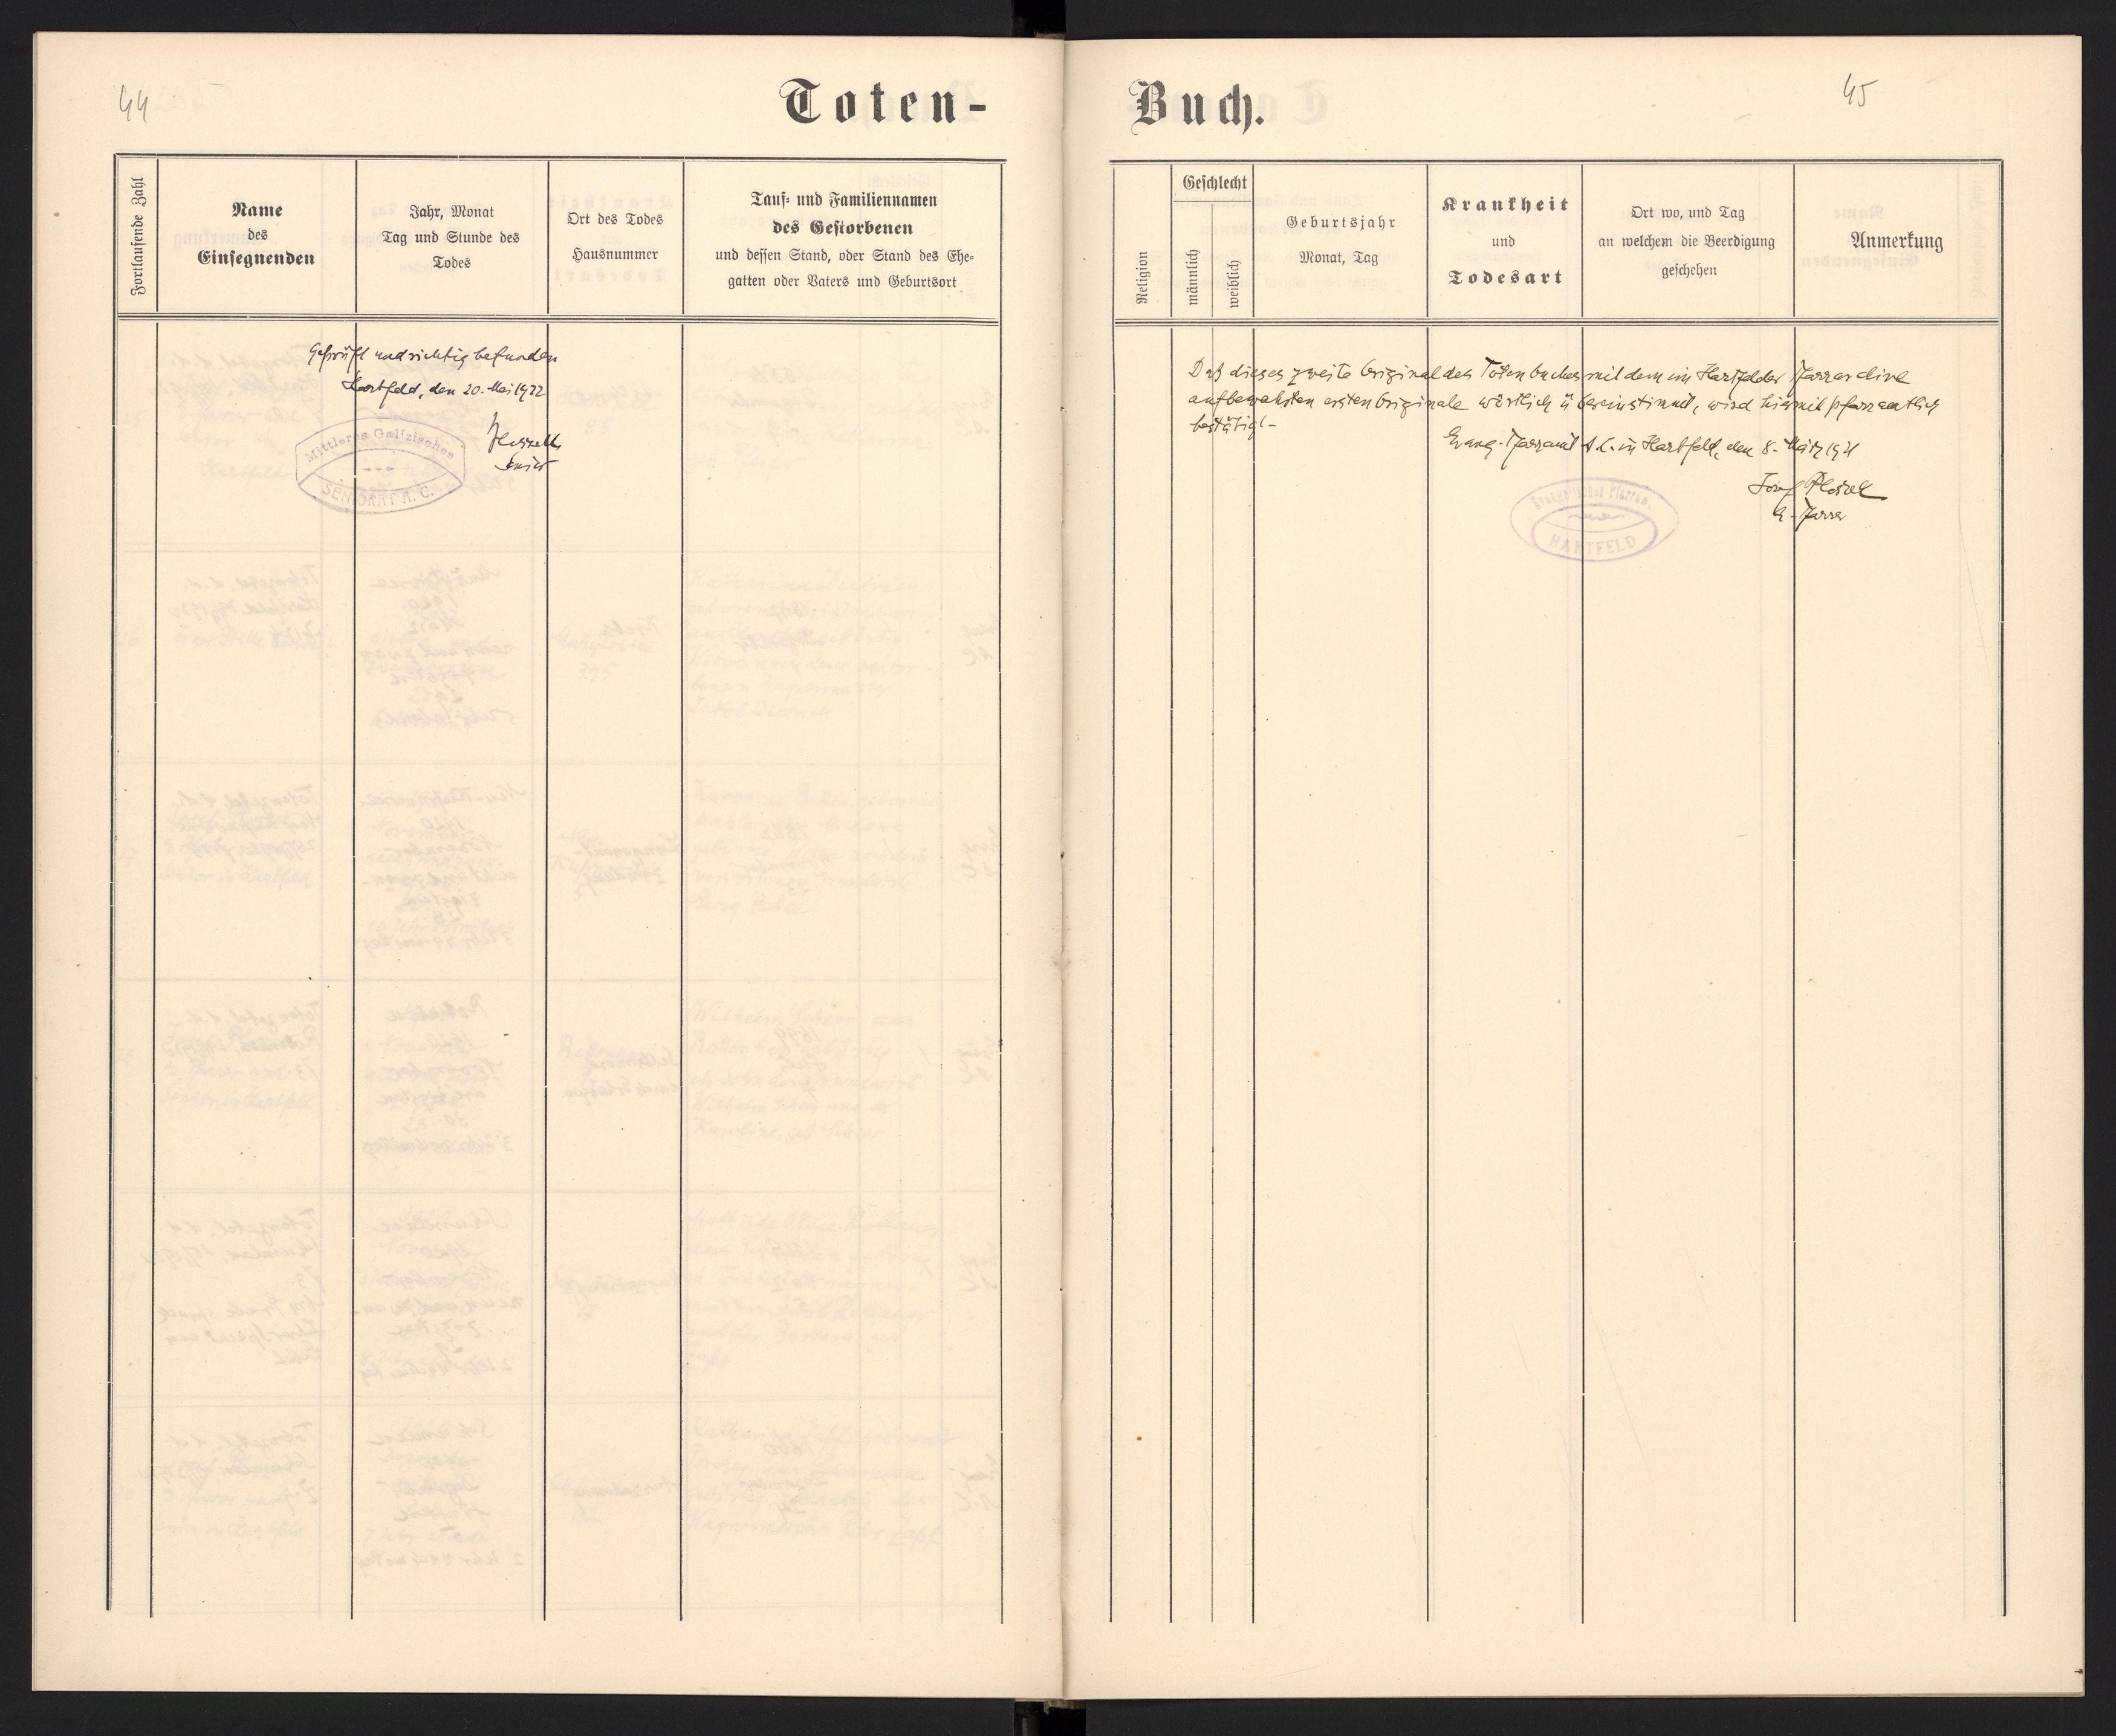 44
Toten-
Fortlaufende Zahl
Name
des
Einsegnenden
Jahr, Monat
Tag und Stunde des
Todes
Ort des Todes
Hausnummer
Tauf- und Familiennamen
des Gestorbenen
und dessen Stand, oder Stand des Ehe-
gatten oder Vaters und Geburtsort
Geprüft und richtig befunden
Hartfeld, den 20. Mai 1922
Senior
Mittleres Galizisches
SENIORAT A. C.
Buch.
45
Religion
Geschlecht
männlich
weiblich
Geburtsjahr
Monat, Tag
Krankheit
und
Todesart
Ort wo, und Tag
an welchem die Beerdigung
geschehen
Anmerkung
Daß dieses zweite Original des Totenbuches mit dem im Hartfelder Pfarrarchive
aufbewahrten ersten Originale wörtlich übereinstimmt, wird hiermit pfarramtlich
bestätigt-
Evang. Pfarramt A.C. in Hartfeld, den 8. März 1921
Josef
Pfarrer
Evangelisches Pfarram.
HARTFELD